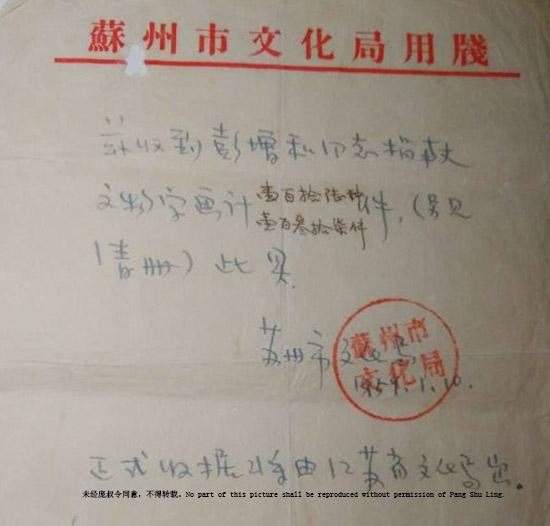 蘇州市文化局用牋
兹收到彭增和同志捐献
文物字画计壹百拾陆种
壹百叁拾柒件件，（另见
清册）此
苏州市文化局
蘇州市
文化局
1959.1.10.
正式收据将由江苏省文化局出。
未经庞叔令同意，不得转载。No part of this picture shall be reproduced without permission of Pang Shu Ling.